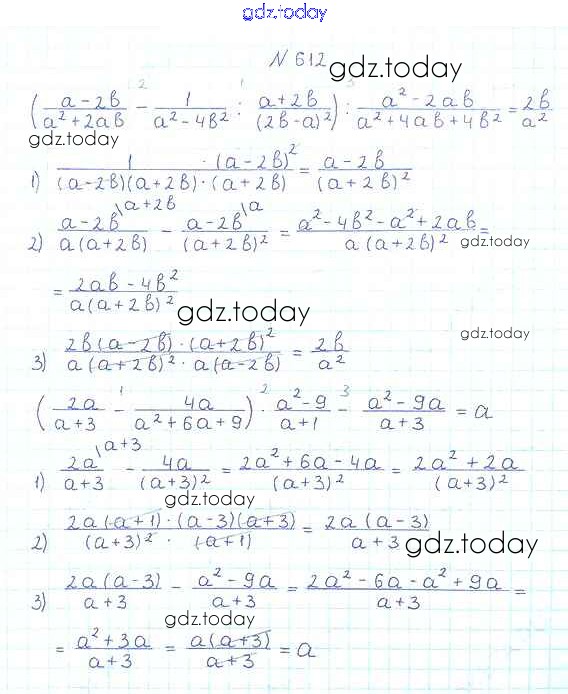 gdz.today
N 612 gdz.today
((a-2b)/(a²+2ab) - 1/(a²-4b²) : (a+2b)/(2b-a)²) : (a²-2ab)/(a²+4ab+4b²) = 2b/a²
gdz.today
1) 1·(a-2b)²/((a-2b)(a+2b)·(a+2b)) = (a-2b)/(a+2b)²
2) (a-2b)\a+2b/(a(a+2b)) - (a-2b)\a/(a+2b)² = (a²-4b²-a²+2ab)/(a(a+2b)²) =
gdz.today
= (2ab-4b²)/(a(a+2b)²)
gdz.today
gdz.today
3) 2b(a-2b)·(a+2b)²/(a(a+2b)²·a(a-2b)) = 2b/a²
(2a/(a+3) - 4a/(a²+6a+9)) · (a²-9)/(a+1) - (a²-9a)/(a+3) = a
1) 2a\a+3/(a+3) - 4a/(a+3)² = (2a²+6a-4a)/(a+3)² = (2a²+2a)/(a+3)²
gdz.today
2) 2a(a+1)·(a-3)(a+3)/((a+3)²·(a+1)) = 2a(a-3)/(a+3)
gdz.today
3) 2a(a-3)/(a+3) - (a²-9a)/(a+3) = (2a²-6a-a²+9a)/(a+3) =
gdz.today
= (a²+3a)/(a+3) = a(a+3)/(a+3) = a